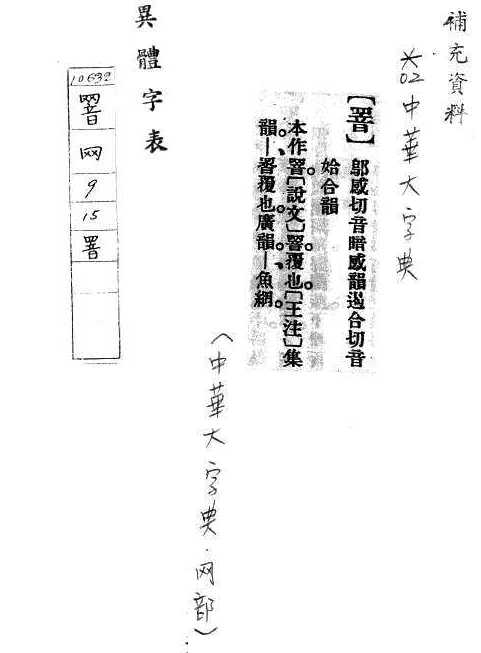 補充資料
※02中華大字典
【罯】
鄔感切音暗感韻遏合切音
姶合韻
本作罯。[說文]罯。覆也。[王注]集
韻、—罯。覆也。廣韻、—魚網。
（中華大字典．网部）
異體字表
10632
罯
网
9
15
罯